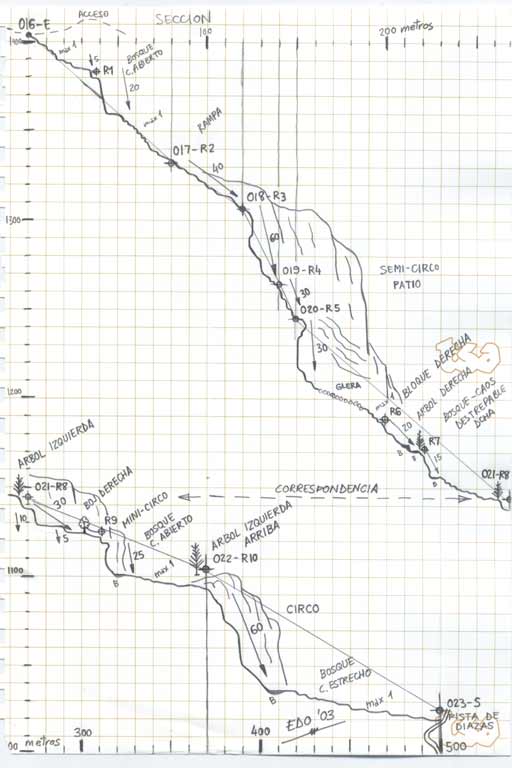 ACCESO
SECCION
016-E
100
200 metros
1400
max 1
5
R1
BOSQUE
C. ABIERTO
20
max 1
RAMPA
017-R2
40
018-R3
1300
60
019-R4
SEMI-CIRCO
PATIO
30
020-R5
30
GLERA
BLOQUE DERECHA
ARBOL DERECHA
BOSQUE-CAOS
DESTREPABLE
DCHA
1200
max 1
R6
20
R7
B
B
15
B
021-R8
ARBOL IZQUIERDA
021-R8
30
BOJ DERECHA
CORRESPONDENCIA
10
5
R9
MINI-CIRCO
BOSQUE
C. ABIERTO
ARBOL IZQUIERDA
ARRIBA
25
max 1
B
022-R10
1100
CIRCO
60
BOSQUE
C. ESTRECHO
B
max 1
023-S
PISTA DE
DIAZAS
EDO '03
00 metros
300
400
500